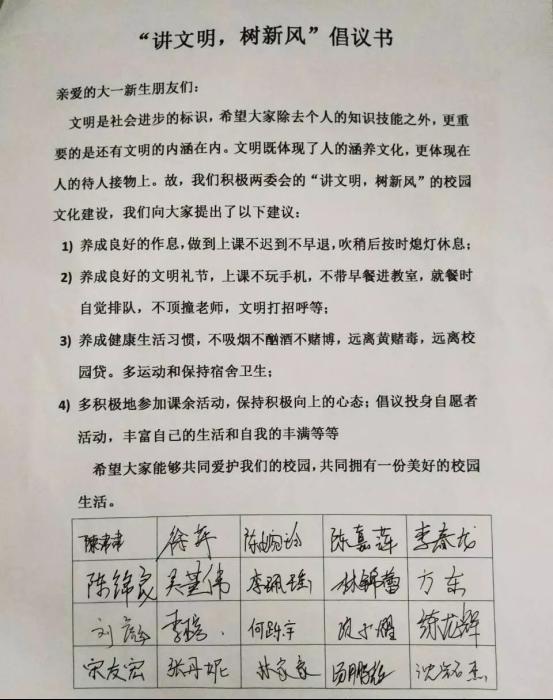 “讲文明，树新风”倡议书
亲爱的大一新生朋友们：
文明是社会进步的标识，希望大家除去个人的知识技能之外，更重
要的是还有文明的内涵在内。文明既体现了人的涵养文化，更体现在
人的待人接物上。故，我们积极两委会的“讲文明，树新风”的校园
文化建设，我们向大家提出了以下建议：
1) 养成良好的作息，做到上课不迟到不早退，吹稍后按时熄灯休息；
2) 养成良好的文明礼节，上课不玩手机，不带早餐进教室，就餐时
自觉排队，不顶撞老师，文明打招呼等；
3) 养成健康生活习惯，不吸烟不酗酒不赌博，远离黄赌毒，远离校
园贷。多运动和保持宿舍卫生；
4) 多积极地参加课余活动，保持积极向上的心态；倡议投身自愿者
活动，丰富自己的生活和自我的丰满等等
希望大家能够共同爱护我们的校园，共同拥有一份美好的校园
生活。
徐萍 陈婉玲 陈嘉莲 李春龙
陈锦良 吴堇伟 李珮瑶 林锦蕾 方东
李杨 何跃宇 练龙辉
宋友宏 张丹妮 林家豪 汤鹏程